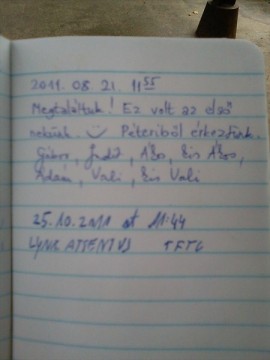 2011. 08. 21. 11 55
Megtaláltuk! Ez volt az első
nekünk. Péteriből érkeztünk.
Gábor, Judit, Ákos, Kis Ákos,
Ádám, Vali, Kis Vali
25.10.2011 at 11:44
LYNX ATTENTUS TFTC